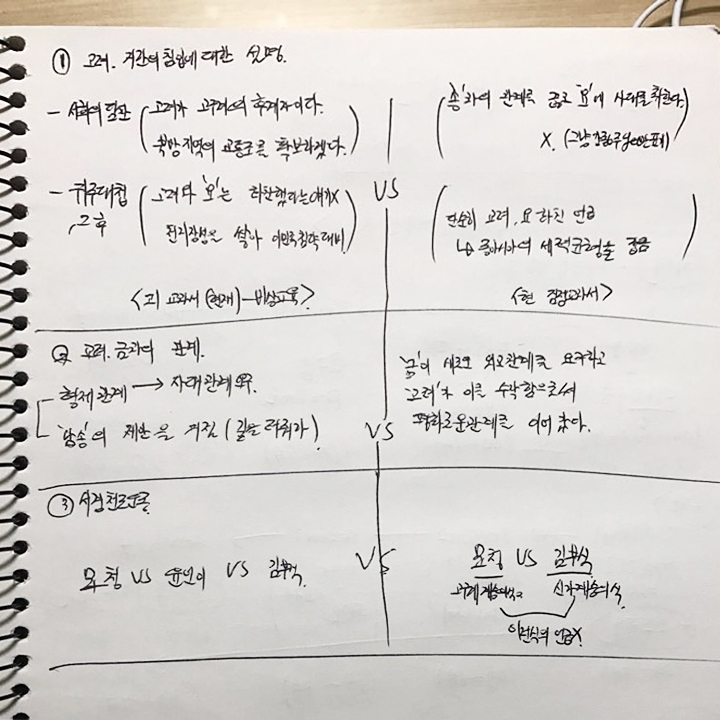 ① 고려. 거란의 침입에 대한 설명.
- 서희의 담판 (고려가 고구려의 후계자이다.
북방지역의 교통로를 확보하겠다.)
- 귀주대첩, 그 후 (고려와 '요'는 화친했다는 얘기X
천리장성을 쌓아 이민족침략 대비)
<고 교과서 (현재) - 비상교육>
VS
'송'과의 관계를 끊고 '요'에 사대를 취한다.
X.
단순히 고려, 요 화친 언급
↳ 동아시아의 세력균형을 이룸
<현 검정교과서>
② 고려. 금과의 관계.
형제관계 → 사대관계
'남송'의 제안을 거절 (길을 터줘라)
VS
'금'이 새로운 외교관계를 요구하고
'고려'가 이를 수락함으로써
평화로운관계를 이어 갔다.
③ 서경천도운동
묘청 VS 윤언이 VS 김부식.
VS
묘청 VS 김부식
고구려계승의식 신라계승의식
이런식의 언급X